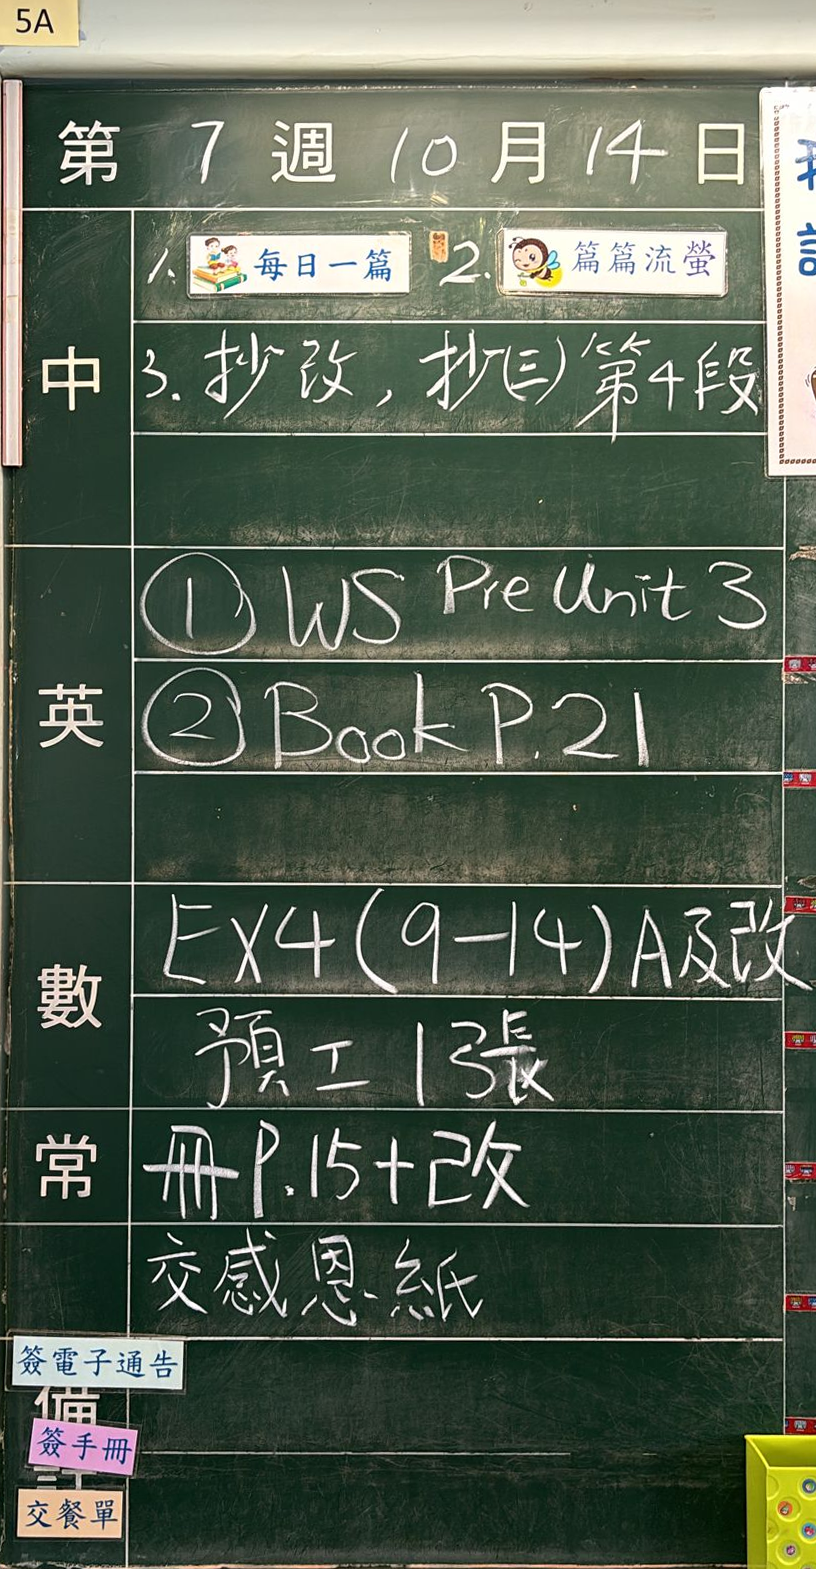 5A
第 7 週 10 月 14 日
1. 每日一篇 2. 篇篇流螢
中 3. 抄改，抄(三)第4段
英 ① WS Pre Unit 3
② Book P.21
數 EX4(9-14)A及改
預工1張
常 冊P.15+改
交感恩紙
簽電子通告
備
簽手冊
交餐單